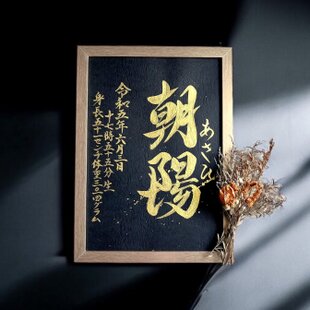 あさひ
朝陽
令和五年六月三日
十七時五十五分 生
身長五十一センチ体重三三一四グラム